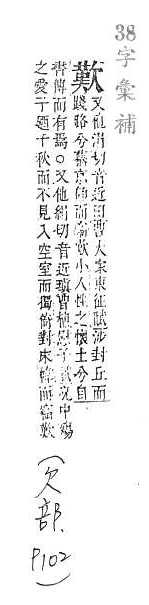 38字彙補
歎 又他涓切音近湍曹大家東征賦涉封丘而
踐路兮慕京師而竊歎小人性之懷土兮自
書傳而有焉○又他絹切音近瑑曹植慰子賦况中殤
之愛子乃千秋而不見入空室而獨倚對床帷而竊歎
(欠部.
P102)